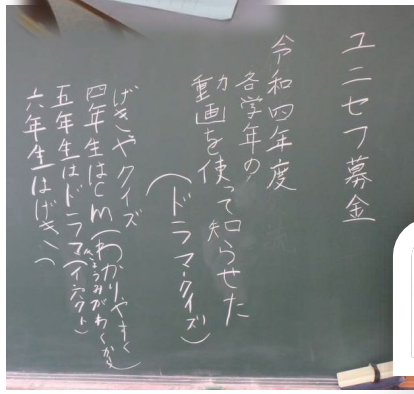 ユニセフ募金
令和四年度
各学年の
動画を使って知らせた
(ドラマ・クイズ)
げきやクイズ
四年生はCM(わかりやすく
きょうみがわくから)
五年生はドラマ(インパクト)
六年生はげき